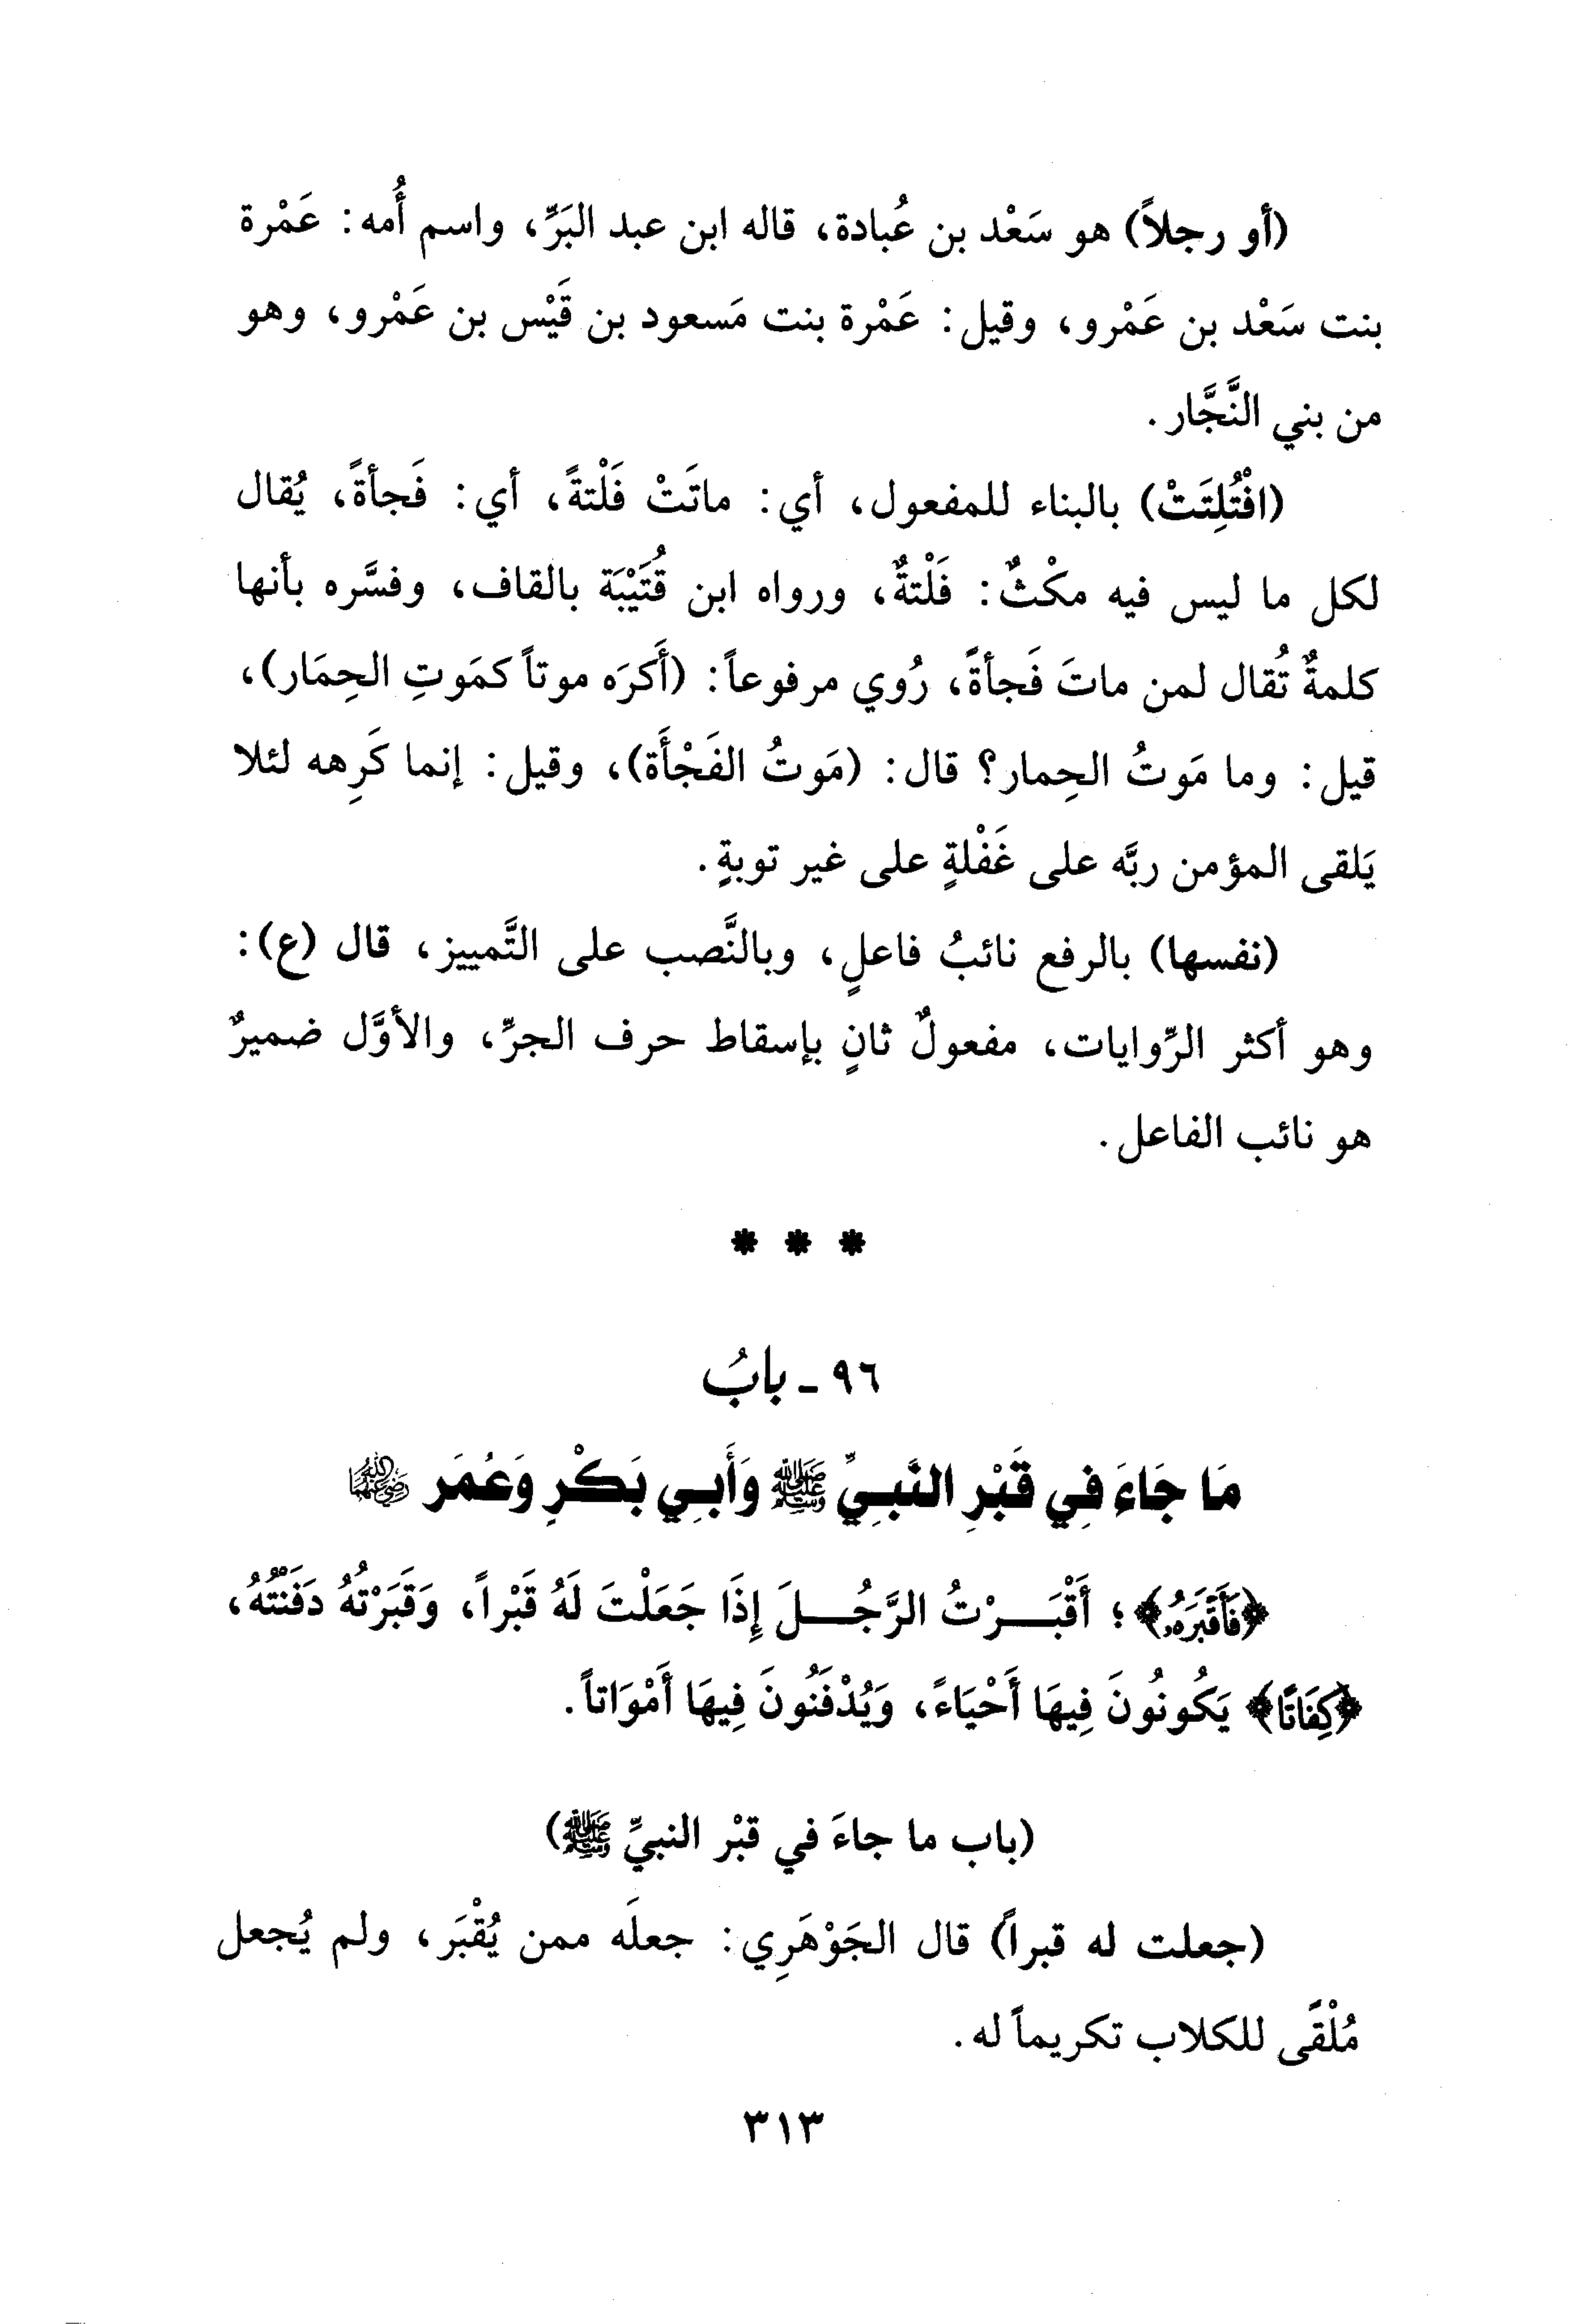 (أو رجلاً) هو سَعْد بن عُبادة، قاله ابن عبد البَرِّ، واسم أُمه: عَمْرة
بنت سَعْد بن عَمْرو، وقيل: عَمْرة بنت مَسعود بن قَيْس بن عَمْرو، وهو
من بني النَّجَّار.
(افْتُلِتَتْ) بالبناء للمفعول، أي: ماتَتْ فَلْتةً، أي: فَجأةً، يُقال
لكل ما ليس فيه مكْثٌ: فَلْتةٌ، ورواه ابن قُتَيْبَة بالقاف، وفسَّره بأنها
كلمةٌ تُقال لمن ماتَ فَجأةً، رُوي مرفوعاً: (أَكرَه موتاً كمَوتِ الحِمَار)،
قيل: وما مَوتُ الحِمار؟ قال: (مَوتُ الفَجْأَة)، وقيل: إنما كَرِهه لئلا
يَلقى المؤمن ربَّه على غَفْلةٍ على غير توبةٍ.
(نفسها) بالرفع نائبُ فاعلٍ، وبالنَّصب على التَّمييز، قال (ع):
وهو أكثر الرِّوايات، مفعولٌ ثانٍ بإسقاط حرف الجرِّ، والأوَّل ضميرٌ
هو نائب الفاعل.
* * *
٩٦ - بابُ
مَا جَاءَ فِي قَبْرِ النَّبِيِّ ﷺ وَأَبِي بَكْرٍ وَعُمَر رَضِيَ اللَّهُ عَنْهُمَا
﴿فَأَقْبَرَهُ﴾؛ أَقْبَرْتُ الرَّجُلَ إِذَا جَعَلْتَ لَهُ قَبْراً، وَقَبَرْتُهُ دَفَنْتُهُ،
﴿كِفَاتًا﴾ يَكُونُونَ فِيهَا أَحْيَاءً، وَيُدْفَنُونَ فِيهَا أَمْوَاتاً.
(باب ما جاءَ في قبْر النبيِّ ﷺ)
(جعلت له قبراً) قال الجَوْهَرِي: جعلَه ممن يُقْبَر، ولم يُجعل
مُلْقًى للكلاب تكريماً له.
٣١٣